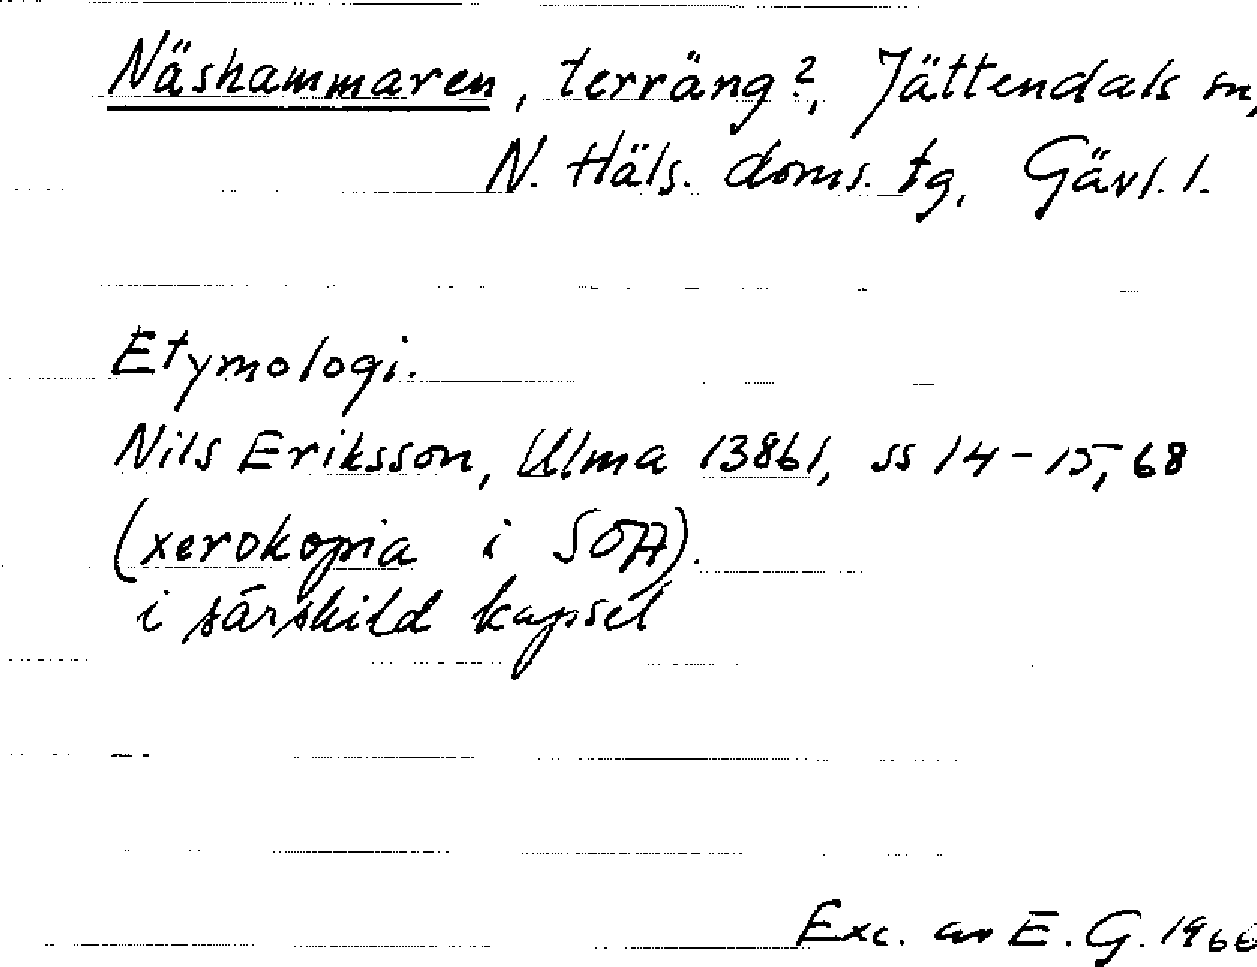 Näshammaren, terräng?, Jättendals sn,
N. Häls. doms. tg, Gävl. l.
Etymologi.
Nils Eriksson, Ulma 13861, ss 14-15, 68
(xerokopia i SOA).
i särskild kapsel
Exc. av E. G. 1966